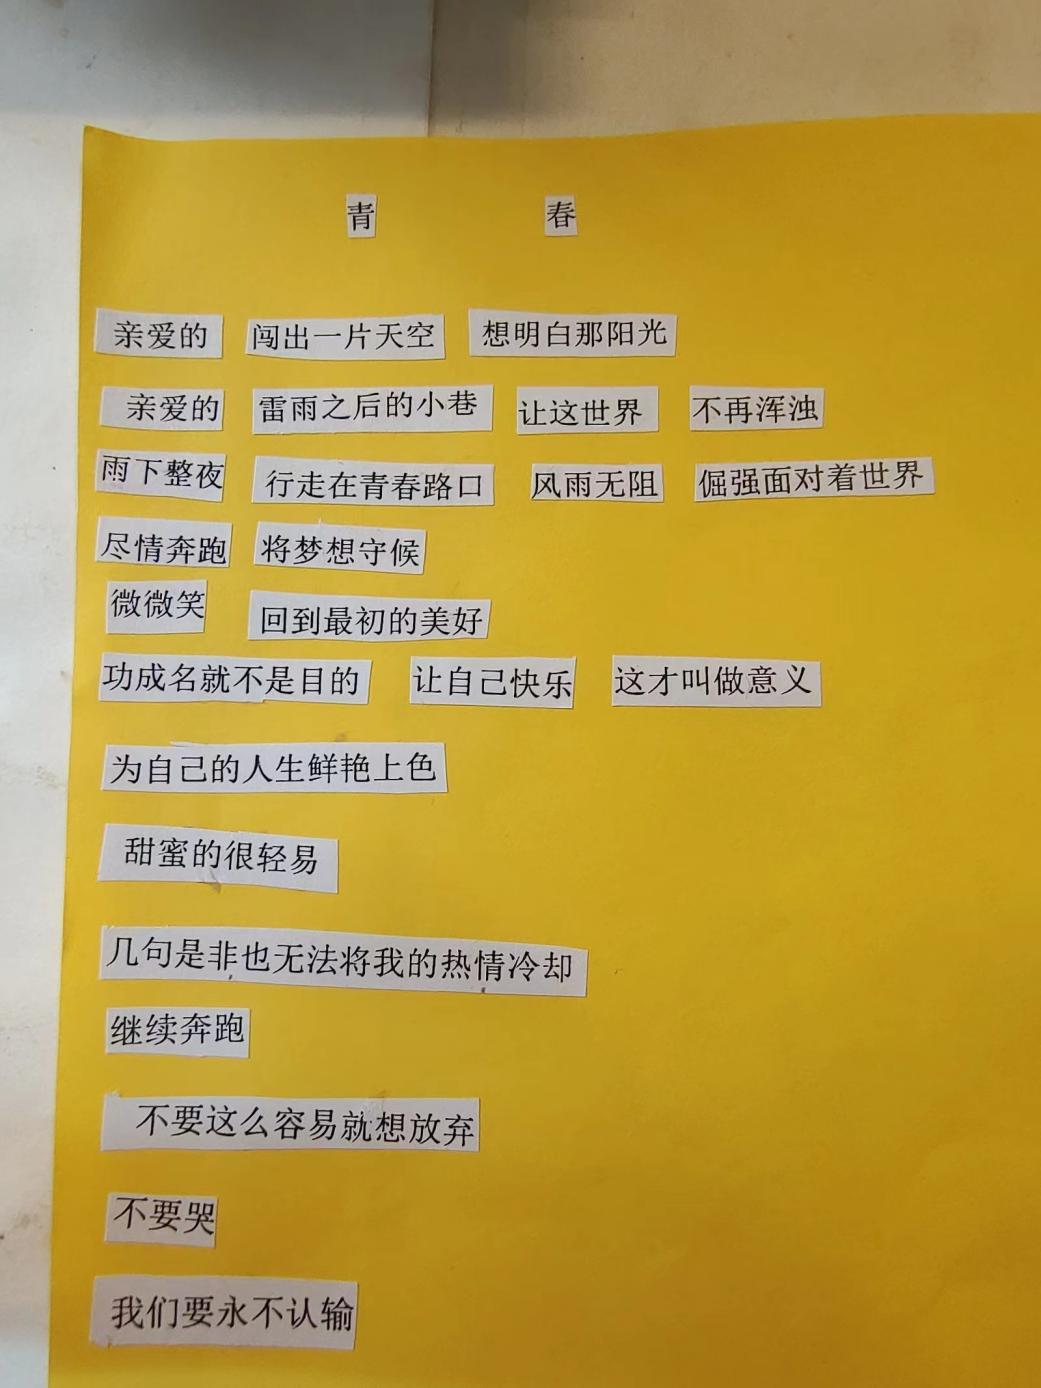 青 春
亲爱的 闯出一片天空 想明白那阳光
亲爱的 雷雨之后的小巷 让这世界 不再浑浊
雨下整夜 行走在青春路口 风雨无阻 倔强面对着世界
尽情奔跑 将梦想守候
微微笑 回到最初的美好
功成名就不是目的 让自己快乐 这才叫做意义
为自己的人生鲜艳上色
甜蜜的很轻易
几句是非也无法将我的热情冷却
继续奔跑
不要这么容易就想放弃
不要哭
我们要永不认输